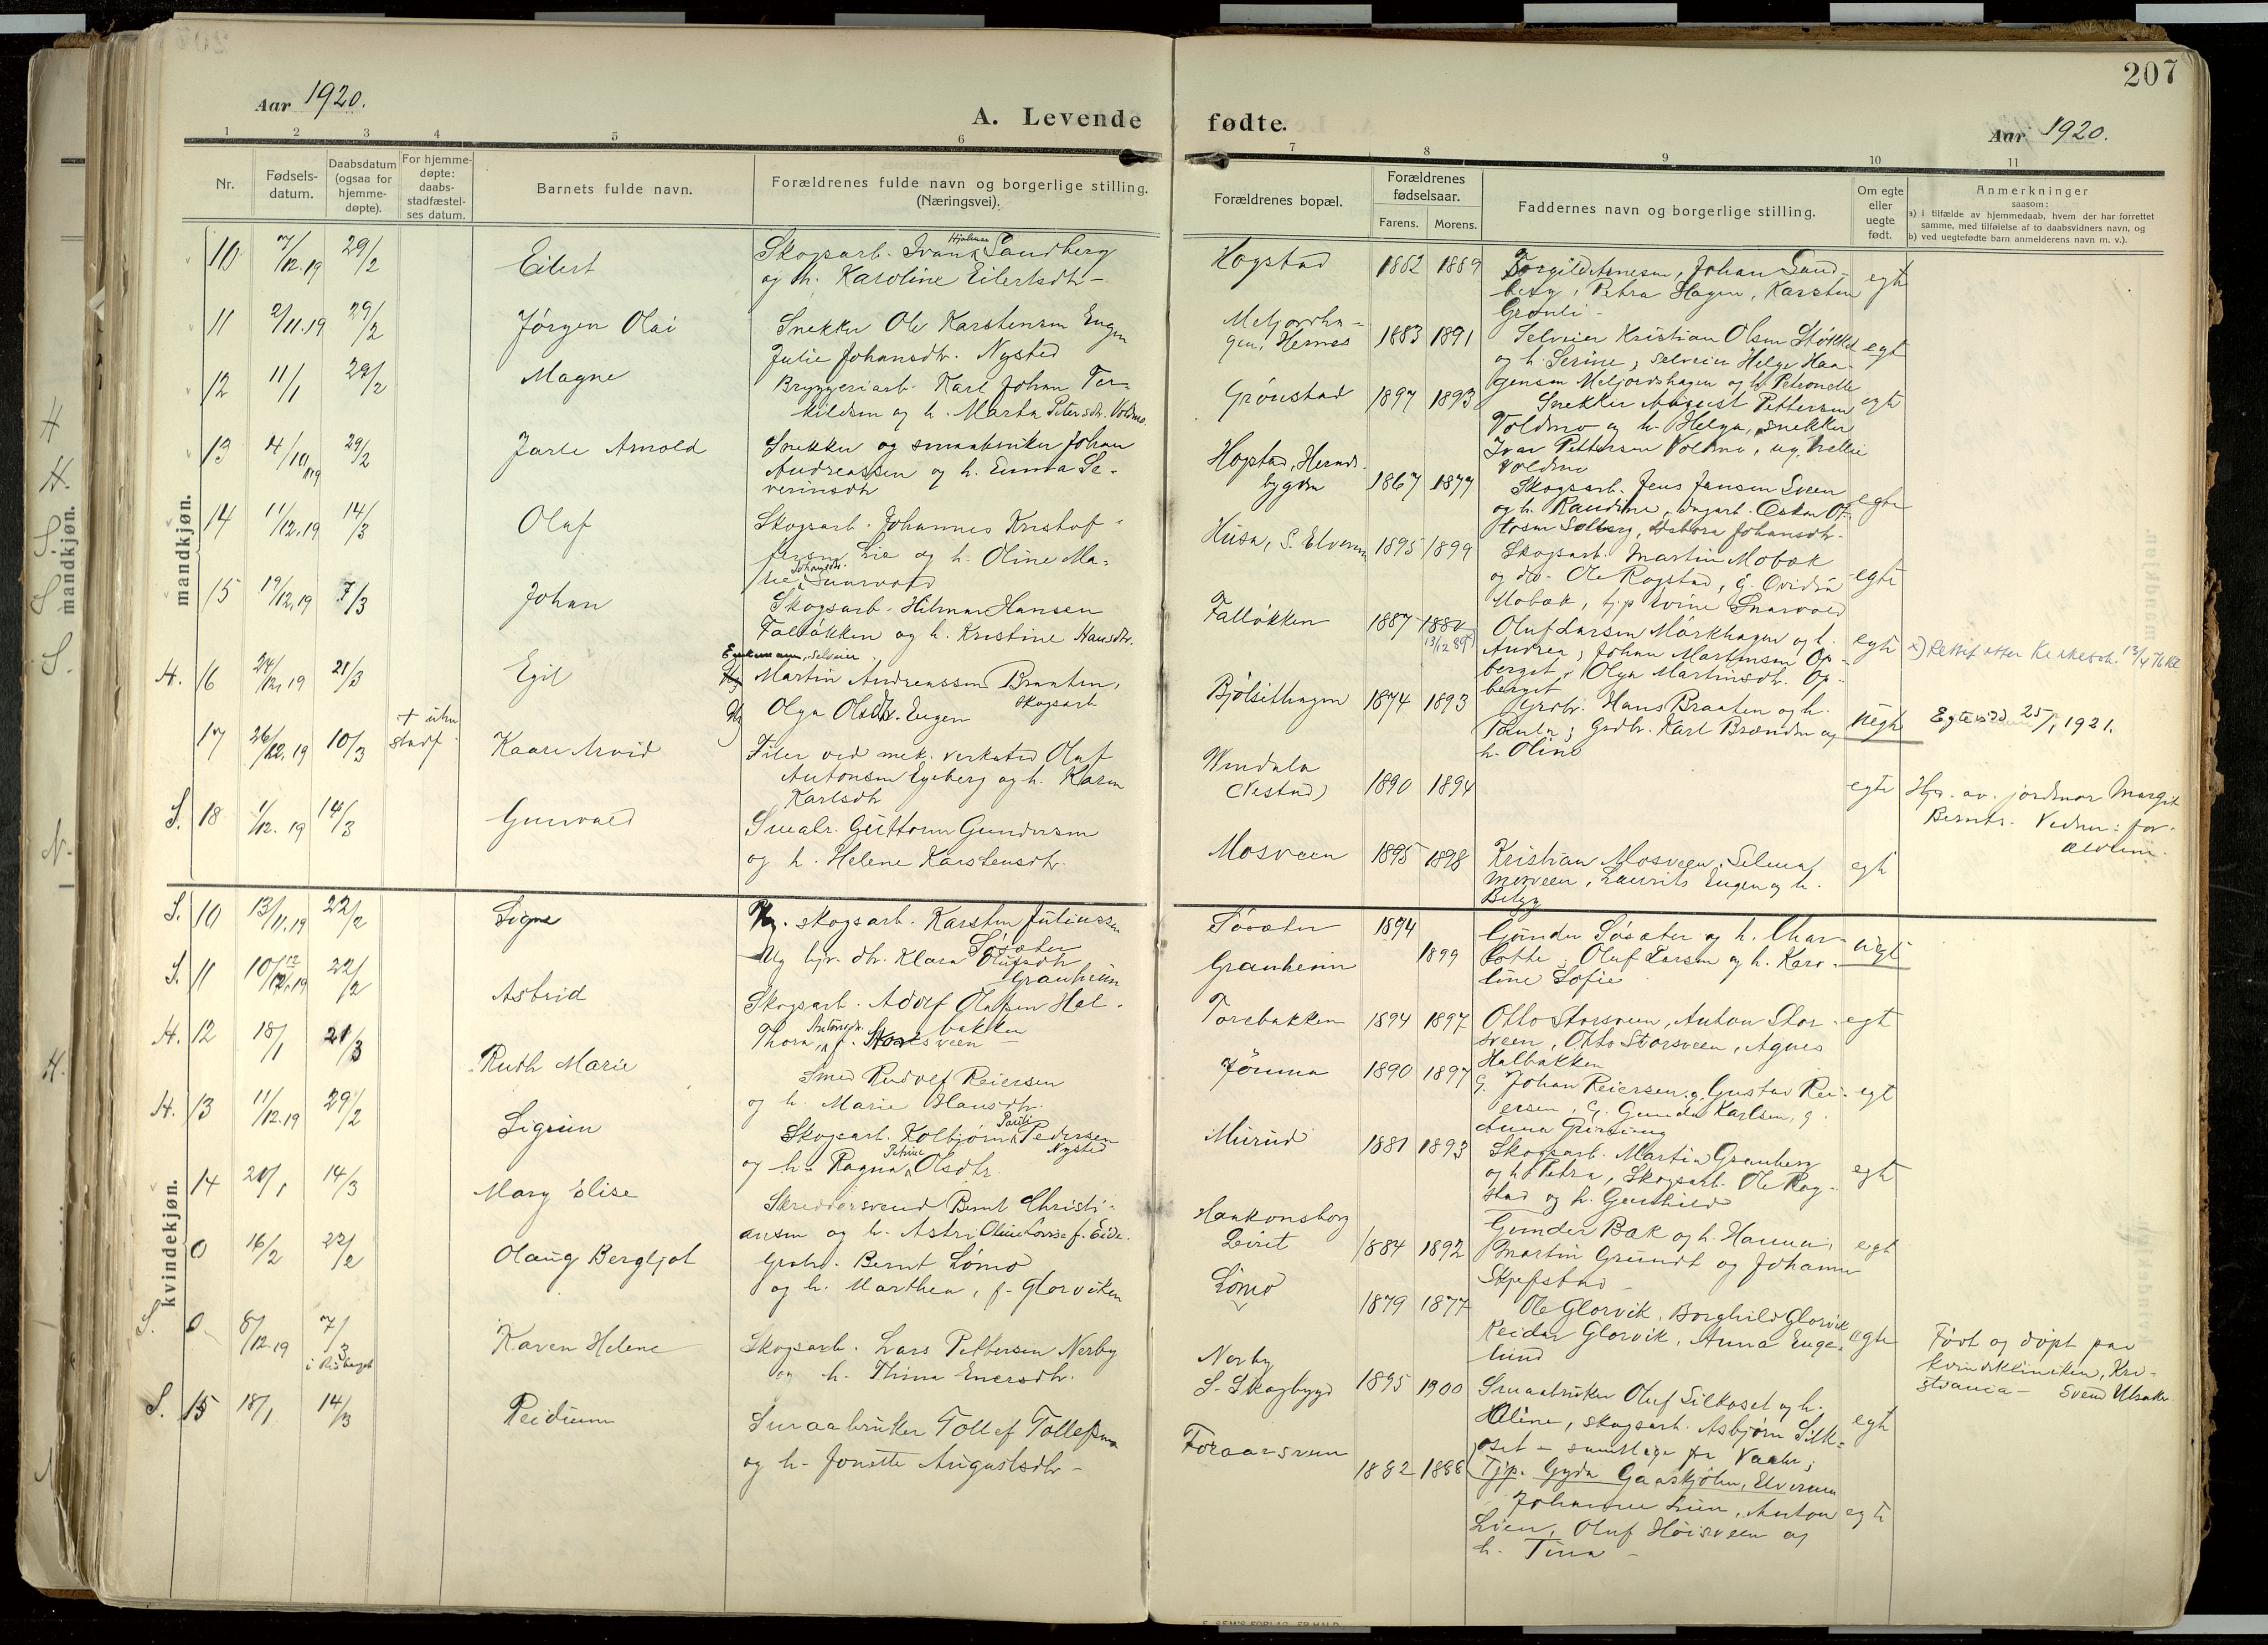 207
Aar 1920.
A. Levende
fødte.
Aar 1920.
1 2 3 4 5 6
7 8 9 10 11
Nr.
Fødsels-
datum.
Daabsdatum
(ogsaa for
hjemme-
døpte).
For hjemme-
døpte:
daabs-
stadfæstel-
ses datum.
Barnets fulde navn.
Forældrenes fulde navn og borgerlige stilling.
(Næringsvei).
Forældrenes bopæl.
Forældrenes
fødselsaar.
Farens. Morens.
Faddernes navn og borgerlige stilling.
Om egte
eller
uegte
født.
Anmerkninger
saasom:
a) i tilfælde av hjemmedaab, hvem der har forrettet
samme, med tilføielse af to daabsvidners navn, og
b) ved uegtefødte barn anmelderens navn m. v.).
mandkjøn.
10 7/12.19 29/2 Eilert
Skogsarb. Ivan Hjalmar Sandberg
og h. Karoline Eilertsdtr.
Hogstad 1882 1889
Torgild Arnesen, Johan Sand-
berg, Petra Hagen, Karsten
Grønli -
egte
11 2/11.19 29/2 Jørgen Olai
Snekker Ole Karstensen Engen
Julie Johansdtr. Nysted
Meljordsha-
gen, Hernes 1883 1891
Selveier Kristian Olsen Stökket
og h. Serine, selveier Helge Haa-
gensen Meljordshagen og h. Petronelle
egt
12 11/1 29/2 Magne
Bryggeriarb. Karl Johan Ter-
kildsen og h. Marta Petersdtr. Voldmo
Grønstad 1897 1893
Snekker August Pettersen
Voldmo og h. Helga, snekker
Ivar Pettersen Voldmo, ug. Nellie
Voldmo
egte
13 4/10 1919 29/2 Jarle Arnold
Snekker og smaabruker Johan
Andreassen og h. Emma Se-
verinsdtr
Hogstad, Hernes-
bygden 1867 1877
Skogsarb. Jens Jansen Sveen
og h. Randine, dagarb. Oskar Ot-
tosen Solberg, Debora Johansdtr.
egte
14 11/12.19 14/3 Olaf
Skogsarb. Johannes Kristof-
fersen Lie og h. Oline Ma-
rie Johansdtr. Snarvold
Husa, S. Elverum 1895 1899
Skogsarb. Martin Mobæk
og do. Ole Rogstad, g. Ovidia
Mobæk, tjp Evine Snarvold
egte
15 19/12.19 7/3 Johan
Skogsarb. Hilmar Hansen
Falløkken og h. Kristine Hansdtr.
Falløkken 1887 1880
13/12 89
Oluf Larsen Mörkhagen og h.
Andrea, Johan Martinsen Op-
berget, Olga Martinsdtr. Op-
berget
egte
x) Rettet etter Kirkedep. 13/4 76
H. 16 24/12.19 21/3 Egil
Enkemann, selveier
Martin Andreassen Braaten,
skogsarb
Ug Olga Olsdtr. Engen
Bjølsethagen 1874 1893
Grdbr. Hans Braaten og h.
Paula; Grdbr. Karl Brænden og
h. Oline
uegte
Egtevid 25/1 1921.
17 26/12.19 10/3 + uten
stadf. Kaare Arvid
Filer ved mek. verksted Olaf
Antonsen Egeberg og h. Karen
Karlsdtr
Vindala
(Nestad) 1890 1894
egte
Hjd. av. jordmor Margit
Bernts. Vidner: for-
ældrene.
S. 18 1/12.19 14/3 Gunvald
Smabr. Guttorm Gundersen
og h. Helene Karstensdtr.
Mosveen 1895 1898
Kristian Mosveen, Selma
Mosveen, Laurits Engen og h.
Betzy
egt
kvindekjøn.
S. 10 13/11.19 22/2 Signe
Ug. skogsarb. Karsten Juliussen
Søsæter
Ug hjv. dtr. Klara Olufsdtr
Granheim
Søsæter 1894
Granheim 1899
Gunder Søsæter og h. Char-
lotte, Oluf Larsen og h. Karo-
line Sofie
uegt
S. 11 10/12.19 22/2 Astrid
Skogsarb. Adolf Olafsen Hal-
bakken
Thora Antonsdtr. f. Storsveen
Torebakken 1894 1897
Otto Storsveen, Anton Stor-
sveen, Otto Storsveen, Agnes
Halbakken
egt
H. 12 18/1 21/3 Ruth Marie
Smed Rudolf Reiersen
og h. Marie Hansdtr.
Jømna 1890 1897
G. Johan Reiersen, g. Gustav Rei-
ersen, G. Gunda Karlsen, g.
Anna
egt
H. 13 11/12.19 29/2 Sigrun
Skogsarb. Kolbjørn Pauli Pedersen
Nysted
og h. Ragna Petrine Olsdtr.
Murud 1881 1893
Skogsarb. Martin Granberg
og h. Petra, Skogsarb. Ole Rog-
stad og h. Gunhild
egt
14 20/1 14/3 Mary Elise
Skreddersvend Bernt Christi-
ansen og h. Astri Oline Lovise f. Eide.
Haakonsborg
Leiret 1884 1892
Gunder Bak og h. Hanna,
Martin Grundt og Johanne
Skjefstad -
egt
0 16/2 22/2 Olaug Bergljot
Grdbr. Bernt Lømo
og h. Marthea, f. Glorviken
Lømo 1879 1877
Ole Glorvik, Borghild Glorvik
Reidar Glorvik, Anna Enge-
lund
egte
Født og døpt paa
kvindekliniken, Kri-
stiania - Svend Ulsaker
S. 0 8/12.19 7/3
i Risberget Karen Helene
Skogsarb. Lars Pettersen Nerby
og h. Thina Enersdtr.
Nerby
S. Skogbygd 1895 1900
Smaabruker Oluf Silkoset og h.
Oline, skogsarb. Asbjørn Silk-
oset - samtlige fra Vaaler;
Tjp. Gyda Gaaskjølen, Elverum
egt
S. 15 18/1 14/3 Reidunn
Smaabruker Tollef Tollefsen
og h. Jonette Augustsdtr -
Foraarsveen 1882 1888
Johanne Lien, Anton
Lien, Oluf Høisveen og
h. Tina -
egte